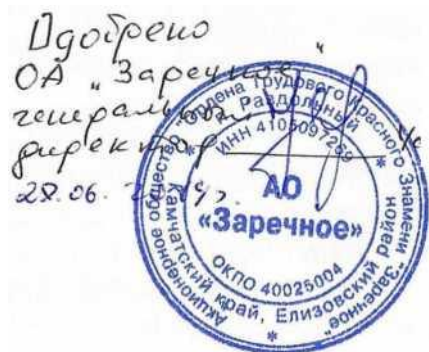 Одобрено
ОА „Заречное"
генеральный
директор
28.06.
Акционерное общество ордена Трудового Красного Знамени "Заречное"
Камчатский край, Елизовский район
Раздольный
ИНН 4105097269
АО
«Заречное»
ОКПО 40025004